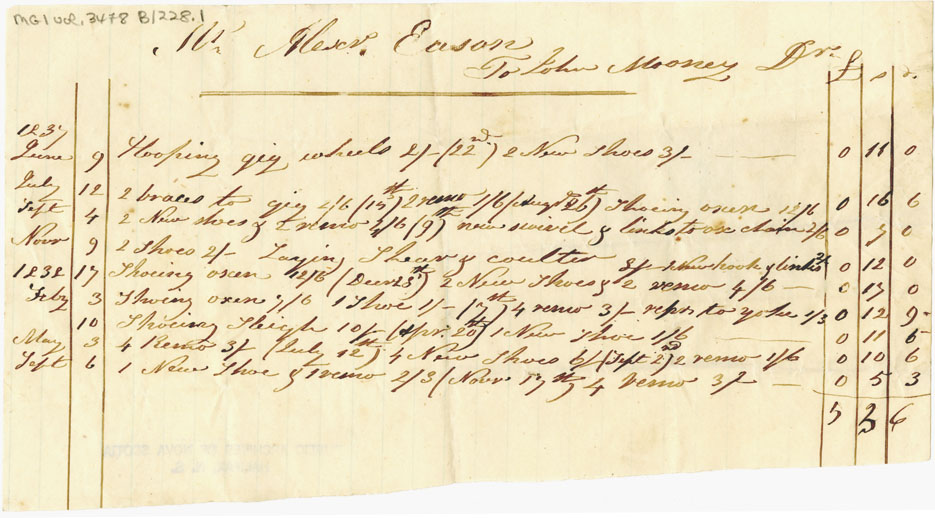 MG1 vol. 3478 B/228.1
Mr Alexr. Eason
To John Mooney Dr. £ s d.
1837
June 9 Hooping gig wheels 8/- (22nd) 2 New Shoes 3/- — 0 11 0
July 12 2 braces to gig 4/6 (14th) 2 remo 1/6 (Augt 26th) Shoeing oxen 12/6 0 16 6
Sept 4 2 New shoes & 2 remo 4/6 (9th) new swivel & links to ox chain 2/6 0 7 0
Novr 9 2 Shoes 2/- Laying Shear & coulter 8/- New hook & links 0 12 0
1838 17 Shoeing oxen 12/6 (Decr 8th) 2 New Shoes & 2 remo 4/6 — 0 17 0
Feby 3 Shoeing oxen 7/6 1 Shoe 1/- (7th) 4 remo 3/- reprs to yoke 1/3 0 12 9
10 Shoeing Sleigh 10/- (Apr. 20th) 1 New Shoe 1/6 — 0 11 6
May 3 4 Remo 3/- (July 12th) 4 New Shoes 6/- (Sept 2nd) 2 remo 1/6 0 10 6
Sept 6 1 New Shoe & 1 remo 2/3 (Novr 17th) 4 remo 3/- — 0 5 3
5 3 6
PUBLIC ARCHIVES OF NOVA SCOTIA
HALIFAX, N. S.